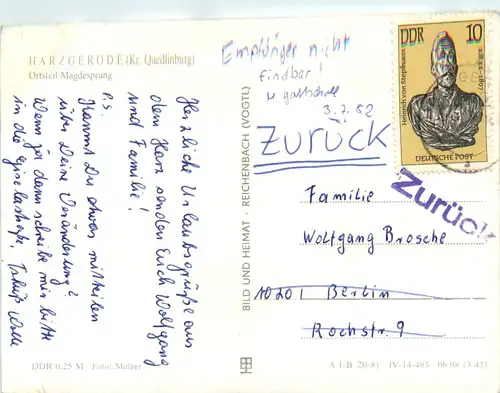 HARZGERODE (Kr. Quedlinburg)
Ortsteil Magdesprung
Herzliche Urlaubsgrüße aus
dem Harz senden Euch Wolfgang
und Familie!
P.S.
Kannst Du etwas mitteilen
über Deine Veränderung?
Wenn ja dann schreibe mir bitte
in die
DDR 0,25 M Foto: Melzer
BILD UND HEIMAT · REICHENBACH (VOGTL)
Empfänger nicht
findbar!
3.7.82
Zurück
DDR 10
Heinrich von Stephan
1831-1897
DEUTSCHE POST
Zurück
Familie
Wolfgang Brosche
1020 1 Berlin
Rochstr. 9
A 1/B 20/81 IV-14-483 06 08 13 421